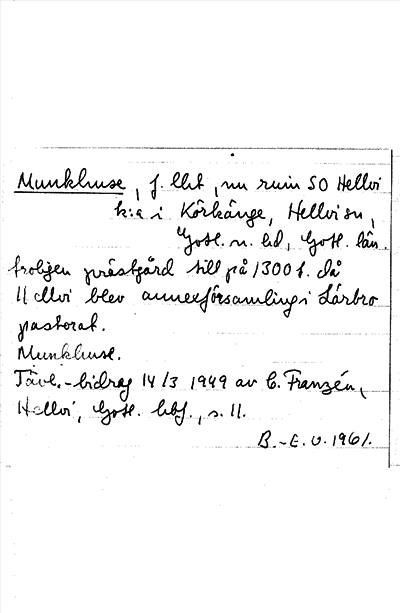 Munkhuse, f. lht, nu ruin SO Hellvi
k:a i Körkänge, Hellvi sn,
Gotl. n. hd, Gotl. län.
troligen prästgård till på 1300 t. då
Hellvi blev annexförsamling i Lärbro
pastorat.
Munkhuse.
Tävl.-bidrag 14/3 1949 av C. Franzén,
Hellvi, Gotl. hbf., s. 11.
B.-E. O. 1961.